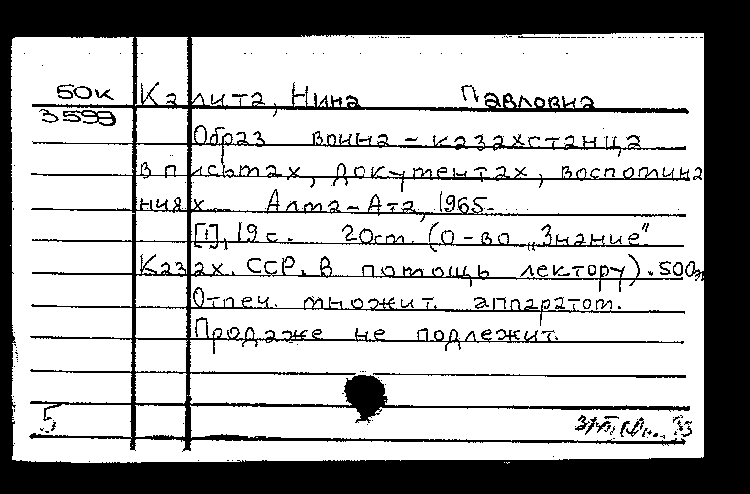 БОК Калита, Нина Павловна
3599
Образ воина - казахстанца
в письмах, документах, воспомина
ниях Алма-Ата, 1965.
[1], 19 с. 20 см. (О-во „Знание"
Казах. ССР. В помощь лектору). 500 эк
Отпеч. множит. аппаратом.
Продаже не подлежит.
5